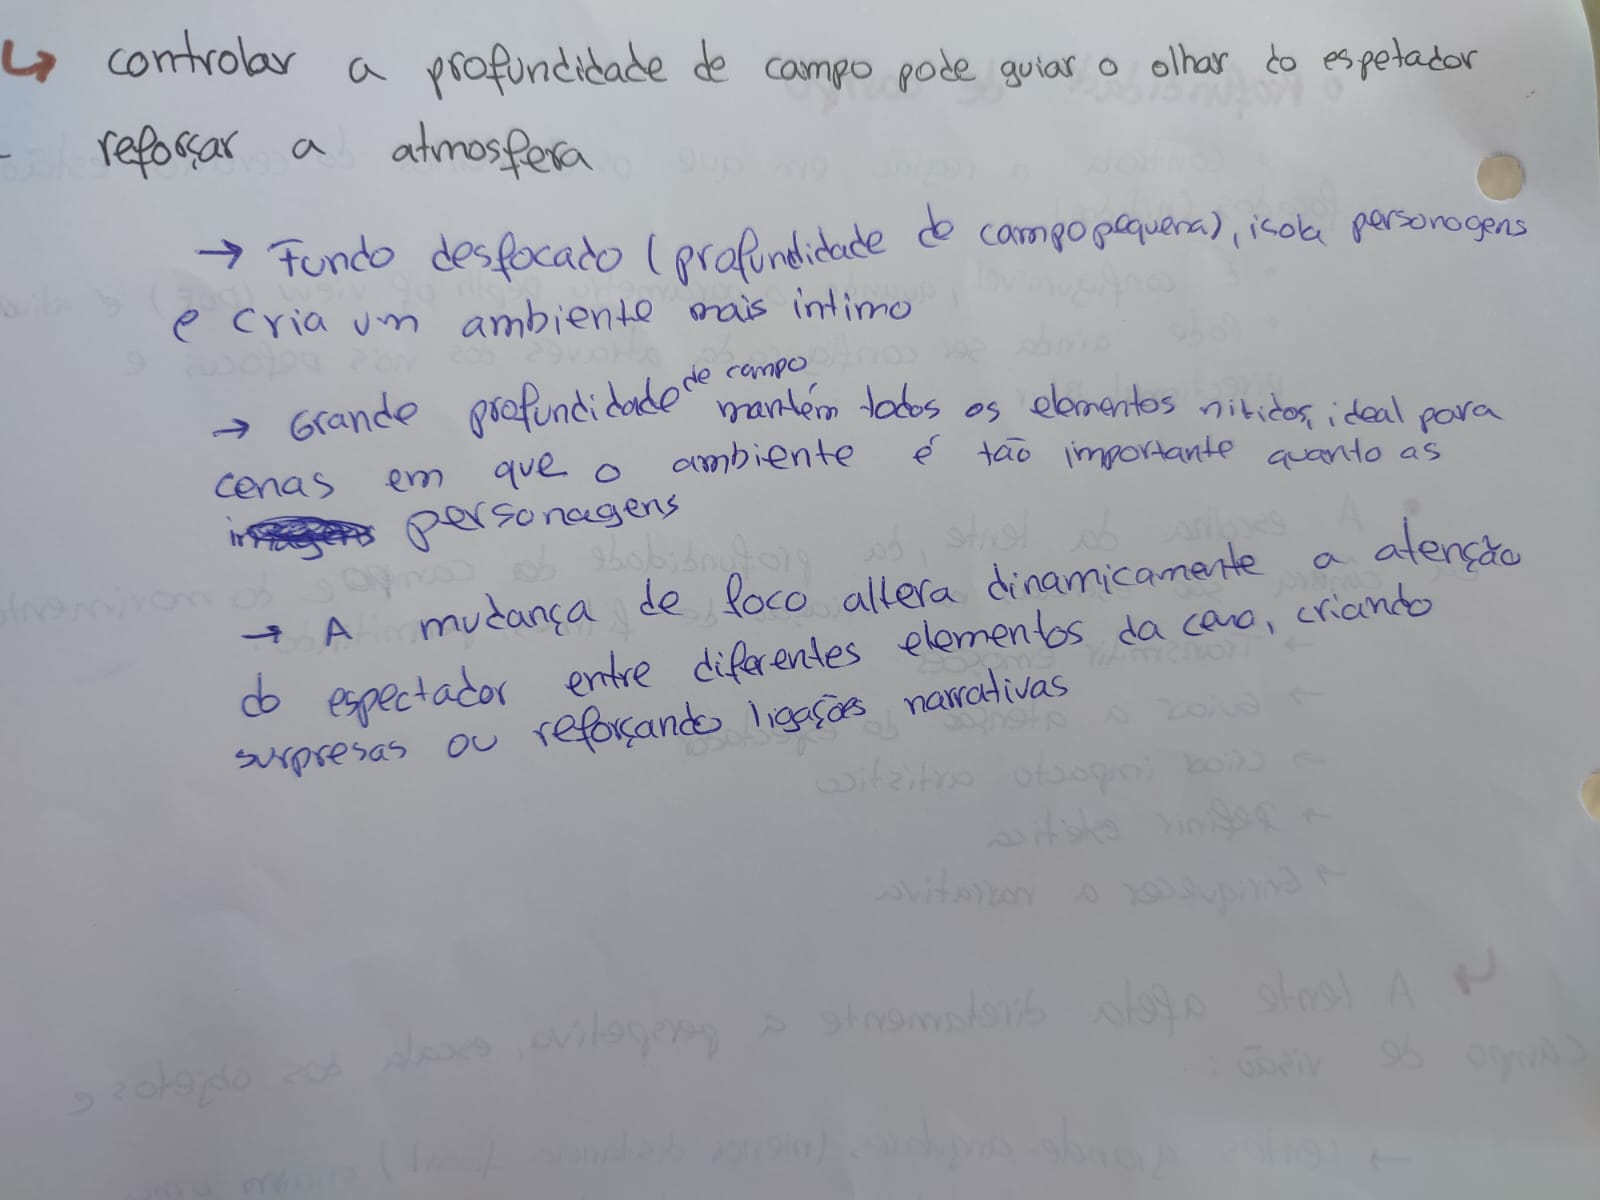 ↳ controlar a profundidade de campo pode guiar o olhar do espetador
reforçar a atmosfera
→ Fundo desfocado (profundidade de campo pequena), isola personagens
e cria um ambiente mais íntimo
→ Grande profundidade de campo mantém todos os elementos nítidos, ideal para
cenas em que o ambiente é tão importante quanto as
personagens
→ A mudança de foco altera dinamicamente a atenção
do espectador entre diferentes elementos da cena, criando
surpresas ou reforçando ligações narrativas